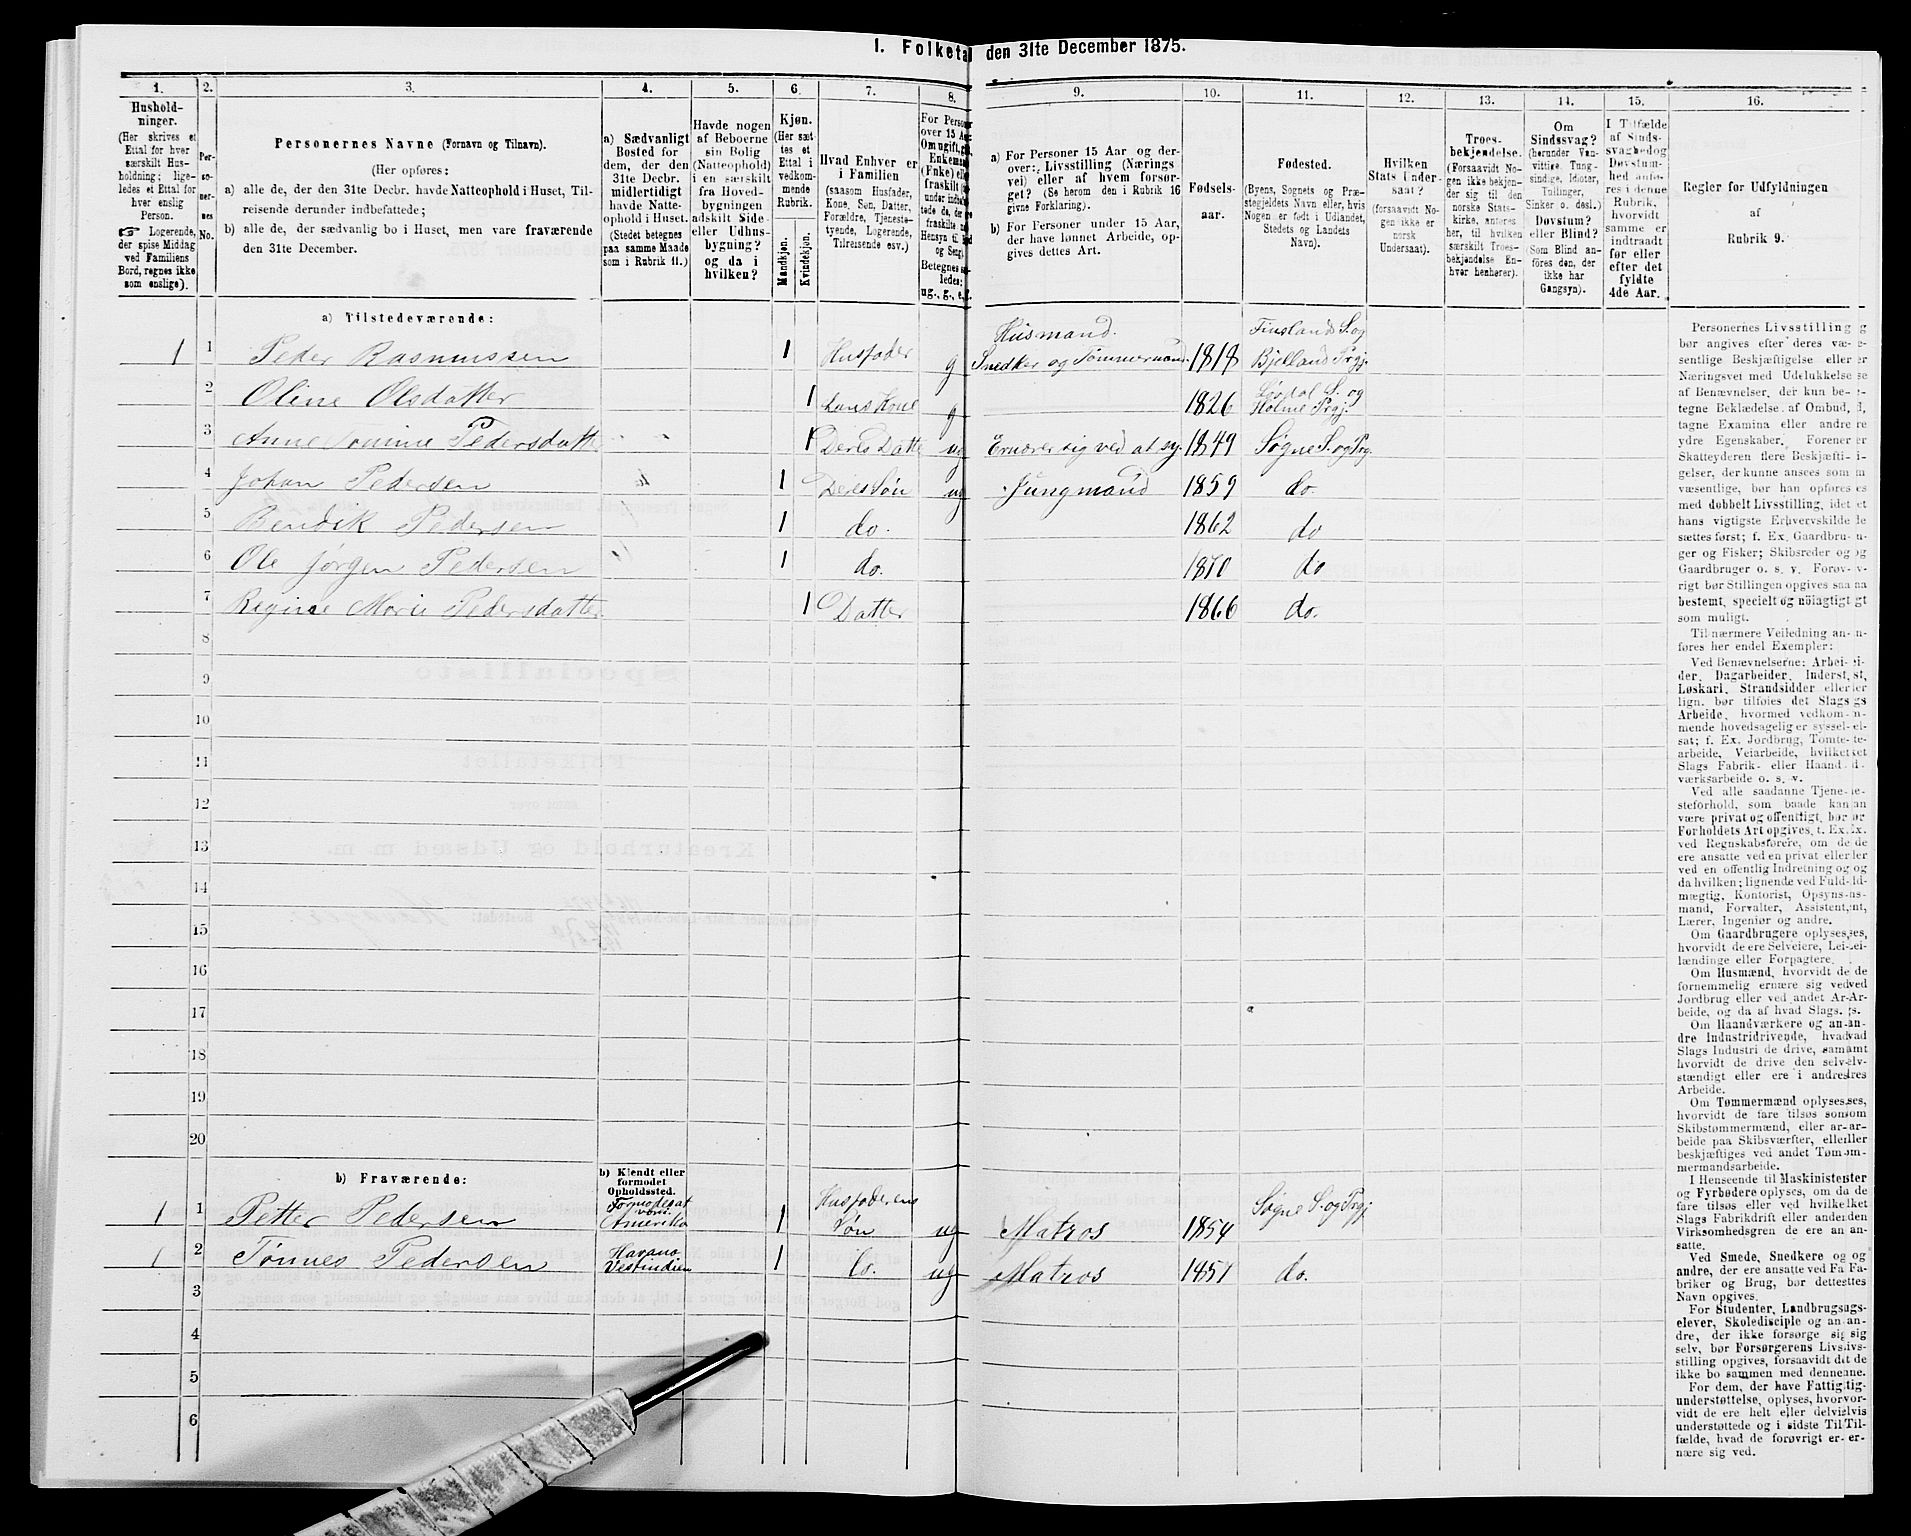 1. Folketal den 31te December 1875.
1. 2. 3. 4. 5. 6. 7. 8. 9. 10. 11. 12. 13. 14. 15. 16.
Hushold-
ninger.
(Her skrives et
Ettal for hver
særskilt Hus-
holdning; lige-
ledes et Ettal for
hver enslig
Person.
☞ Logerende,
der spise Middag
ved Familiens
Bord, regnes ikke
som enslige).
Per-
so-
ner-
nes
No.
Personernes Navne (Fornavn og Tilnavn).
(Her opføres:
a) alle de, der den 31te Decbr. havde Natteophold i Huset, Til-
reisende derunder indbefattede;
b) alle de, der sædvanlig bo i Huset, men vare fraværende
den 31te December.
a) Sædvanligt
Bosted for
dem, der den
31te Decbr.
midlertidigt
havde Natte-
ophold i Huset.
(Stedet betegnes
paa samme Maade
som i Rubrik 11.)
Havde nogen
af Beboerne
sin Bolig
(Natteophold)
i en særskilt
fra Hoved-
bygningen
adskilt Side-
eller Udhus-
bygning?
og da i
hvilken?
Kjøn.
(Her sæt-
tes et
Ettal i
vedkom-
mende
Rubrik.
Mandkjøn.
Kvindekjøn.
Hvad Enhver er
i Familien
(saasom Husfader,
Kone, Søn, Datter,
Forældre, Tjeneste-
tyende, Logerende,
Tilreisende osv.)
For Personer
over 15 Aar:
Om ugift, gift,
Enkemand
(Enke) eller
fraskilt
ug., g., e., f.
a) For Personer 15 Aar og der-
over: Livsstilling (Nærings
vei) eller af hvem forsør-
get? (Se herom den i Rubrik 16
givne Forklaring).
b) For Personer under 15 Aar,
der have lønnet Arbeide, op-
gives dettes Art.
Fødsels-
aar.
Fødested.
(Byens, Sognets og Præ-
stegjeldets Navn, eller, hvis
Nogen er født i Udlandet,
Stedets og Landets
Navn).
Hvilken
Stats Under-
saat?
(forsaavidt No-
gen ikke er
norsk
Undersaat).
Troes-
bekjendelse.
(Forsaavidt No-
gen ikke bekjen-
der sig til den
norske Stats-
kirke, anføres
her, til hvilken
særskilt Troes-
bekjendelse En-
hver henhører).
Om
Sindssvag?
(herunder Van-
vittige, Tung-
sindige, Idioter,
Tullinger,
Sinker o. desl.)
Døvstum?
eller Blind?
(Som Blind an-
føres den, der
ikke har
Gangsyn).
I Tilfælde
af Sinds-
svaghed og
Døvstum-
hed anfø-
res i denne
Rubrik,
hvorvidt
samme er
indtraadt
før eller
efter det
fyldte
4de Aar.
Regler for Udfyldningen
af
Rubrik 9.
a) Tilstedeværende:
1 1 Peder Rasmussen 1 Husfader g Husmand. Snedker og Tømmermand. 1818 Finsland S. og Bjelland Prgj.
2 Oline Olsdatter 1 hans Kone g 1826 Løvdal S. og Holme Prgj.
3 Anne Tomine Pedersdatter 1 Deres Datter ug Ernærer sig ved at sy. 1849 Søgne S. og Prg.
4 Johan Pedersen 1 Deres Søn ug Jungmand 1859 do.
5 Bendik Pedersen 1 do. 1862 do
6 Ole Jørgen Pedersen 1 do. 1870 do
7 Regine Marie Pedersdatter 1 Datter 1866 do.
8
9
10
11
12
13
14
15
16
17
18
19
20
b) Fraværende:
b) Kjendt eller
formodet
Opholdssted.
1 1 Petter Pedersen Formodes at være Amerika 1 Husfaderens Søn ug Matros 1854 Søgne S. og Prgj
1 2 Tønnes Pedersen Havana Vestindien 1 do. ug Matros 1851 do.
3
4
5
6
Personernes Livsstilling
bør angives efter deres væ-
sentlige Beskjæftigelse eller
Næringsvei med Udelukkelse
af Benævnelser, der kun be-
tegne Beklædelse af Ombud,
tagne Examina eller andre
ydre Egenskaber. Forener
Skatteyderen flere Beskjæfti-
gelser, der kunne ansees som
væsentlige, bør han opføres
med dobbelt Livsstilling, idet
hans vigtigste Erhvervskilde
sættes først; f. Ex. Gaardbru-
ger og Fisker; Skibsreder og
Gaardbruger o. s. v. Forøv-
rigt bør Stillingen opgives saa
bestemt, specielt og nöiagtigt
som muligt.
Til nærmere Veiledning an-
føres her endel Exempler:
Ved Benævnelserne: Arbei-
der, Dagarbeider, Inderst,
Løskarl, Strandsidder eller
lign. bør tilføies det Slags
Arbeide, hvormed vedkom-
mende hovedsagelig er syssel-
sat; f. Ex. Jordbrug, Tomte-
arbeide, Veiarbeide, hvilket
Slags Fabrik- eller Haand-
værksarbeide o. s. v.
Ved alle saadanne Tjene-
steforhold, som baade kan
være privat og offentligt, bør
Forholdets Art opgives, f. Ex.
ved Regnskabsførere, om de
ere ansatte ved en privat eller
ved en offentlig Indretning og
da hvilken; lignende ved Fuld-
mægtig, Kontorist, Opsyns-
mand, Forvalter, Assistent,
Lærer, Ingeniør og andre.
Om Gaardbrugere oplyses,
hvorvidt de ere Selveiere, Lei-
lændinge eller Forpagtere.
Om Husmænd, hvorvidt de
fornemmelig ernære sig ved
Jordbrug eller ved andet Ar-
beide, og da af hvad Slags.
Om Haandværkere og an-
dre Industridrivende, hvad
Slags Industri de drive, samt
hvorvidt de drive den selv-
stændigt eller ere i andres
Arbeide.
Om Tømmermænd oplyses,
hvorvidt de fare tilsøs som
Skibstømmermænd, eller ar-
beide paa Skibsværfter, eller
beskjæftiges ved andet Tøm-
mermandsarbeide.
I Henseende til Maskinister
og Fyrbødere oplyses, om de
fare tilsøs eller ved hvilket
Slags Fabrikdrift eller anden
Virksomhedsgren de ere an-
satte.
Ved Smede, Snedkere og
andre, der ere ansatte ved Fa-
briker og Brug, bør dettes
Navn opgives.
For Studenter, Landbrugs-
elever, Skoledisciple og an-
dre, der ikke forsørge sig
selv, bør Forsørgerens Livs-
stilling opgives, forsaavidt de
ikke bo sammen med denne.
For dem, der have Fattig-
understøttelse, oplyses, hvor-
vidt de ere helt eller delvis
understøttede og i sidste Til-
fælde, hvad de forøvrigt er-
nære sig ved.